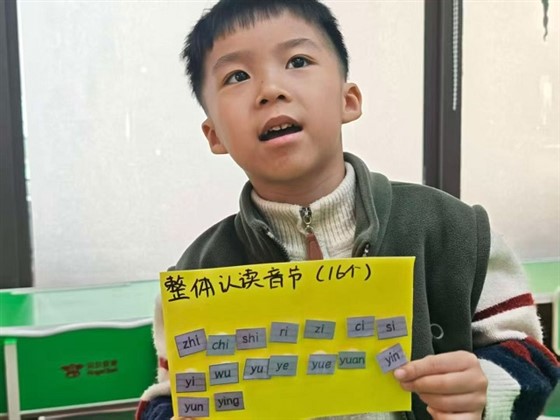 整体认读音节(16个)
zhi chi shi ri zi ci si
yi wu yu ye yue yuan yin
yun ying